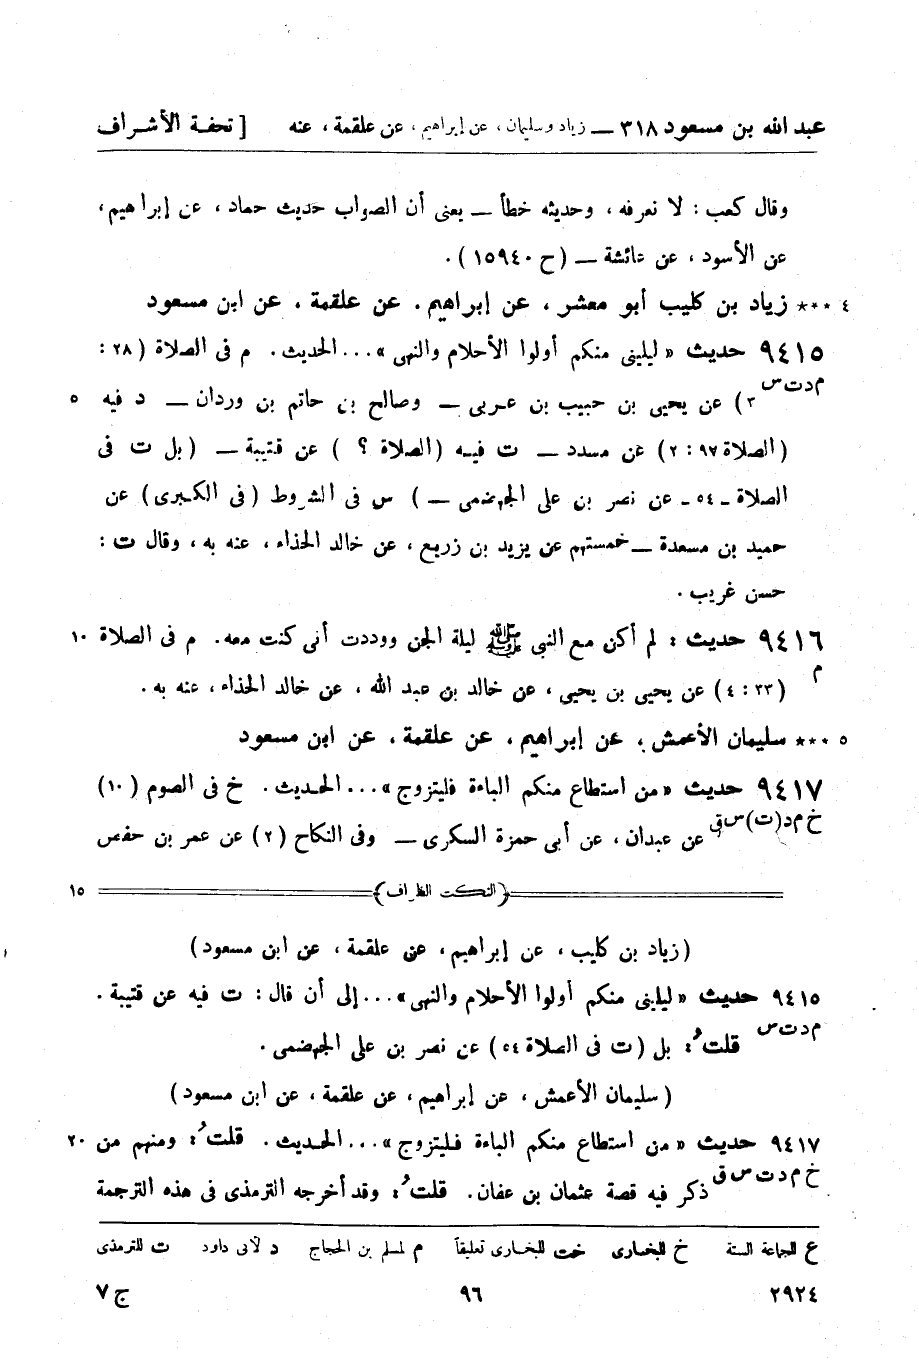 عبد الله بن مسعود ٣١٨ — زياد وسليمان، عن إبراهيم، عن علقمة، عنه [ تحفة الأشراف
وقال كعب : لا نعرفه ، وحديثه خطأ — يعنى أن الصواب حديث حماد ، عن إبراهيم،
عن الأسود ، عن عائشة — (ح ١٥٩٤٠) .
٤ *** زياد بن كليب أبو معشر ، عن إبراهيم . عن علقمة . عن ابن مسعود
٩٤١٥ حديث « ليلينى منكم أولوا الأحلام والنهى »...الحديث . م فى الصلاة (٢٨ :
م د ت س ٣) عن يحيى بن حبيب بن عربى — وصالح بن حاتم بن وردان — د فيه ٥
(الصلاة ٩٧ : ٢) عن مسدد — ت فيه (الصلاة ؟ ) عن قتيبة — (بل ت فى
الصلاة ـ ٥٤ ـ عن نصر بن على الجهضمى — ) س فى الشروط (فى الكبرى) عن
حميد بن مسعدة — خمستهم عن يزيد بن زريع ، عن خالد الحذاء ، عنه به ، وقال ت :
حسن غريب .
٩٤١٦ حديث : لم أكن مع النبى ﷺ ليلة الجن ووددت أنى كنت معه . م فى الصلاة ١٠
م (٣٣ : ٤) عن يحيى بن يحيى ، عن خالد بن عبد الله ، عن خالد الحذاء ، عنه به .
٥ *** سليمان الأعمش ، عن إبراهيم ، عن علقمة ، عن ابن مسعود
٩٤١٧ حديث « من استطاع منكم الباءة فليتزوج »...الحديث . خ فى الصوم (١٠)
خ م د (ت) س ق عن عبدان ، عن أبى حمزة السكرى — وفى النكاح (٢) عن عمر بن حفص
(النكت الظراف) ١٥
(زياد بن كليب ، عن إبراهيم، عن علقمة ، عن ابن مسعود)
٩٤١٥ حديث « ليلينى منكم أولوا الأحلام والنهى »...إلى أن قال : ت فيه عن قتيبة .
م د ت س قلتُ : بل (ت فى الصلاة ٥٤) عن نصر بن على الجهضمى .
(سليمان الأعمش ، عن إبراهيم ، عن علقمة ، عن ابن مسعود)
٩٤١٧ حديث « من استطاع منكم الباءة فليتزوج »...الحديث . قلتُ : ومنهم من ٢٠
خ م د ت س ق ذكر فيه قصة عثمان بن عفان . قلتُ : وقد أخرجه الترمذى فى هذه الترجمة
ع للجماعة الستة خ للبخارى خت للبخارى تعليقاً م لمسلم بن الحجاج د لأبى داود ت للترمذى
٢٩٢٤ ٩٦ ج ٧